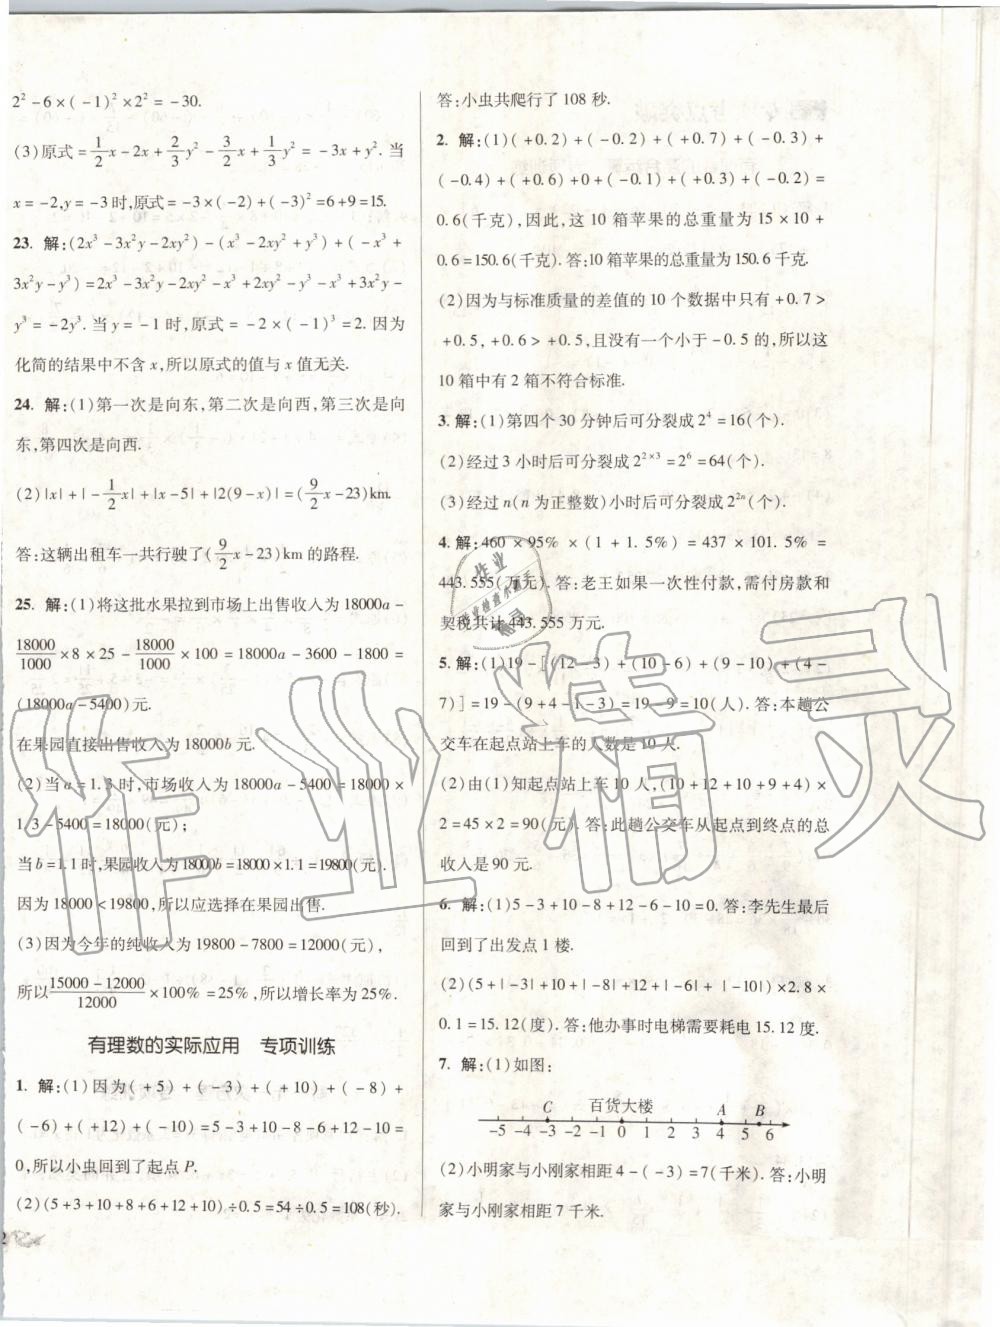 2² - 6×(-1)²×2² = -30.
(3)原式 = 1/2 x - 2x + 2/3 y² - 3/2 x + 1/3 y² = -3x + y². 当
x = -2, y = -3时,原式 = -3×(-2)+(-3)² = 6+9 = 15.
23. 解:(2x³ - 3x²y - 2xy²) - (x³ - 2xy² + y³) + (-x³ +
3x²y - y³) = 2x³ - 3x²y - 2xy² - x³ + 2xy² - y³ - x³ + 3x²y -
y³ = -2y³. 当 y = -1 时,原式 = -2×(-1)³ = 2. 因为
化简的结果中不含 x,所以原式的值与 x 值无关.
24. 解:(1)第一次是向东,第二次是向西,第三次是向
东,第四次是向西.
(2)|x|+|-1/2 x|+|x-5|+|2(9-x)| = (9/2 x - 23)km.
答:这辆出租车一共行驶了(9/2 x - 23)km 的路程.
25. 解:(1)将这批水果拉到市场上出售收入为 18000a -
18000/1000 × 8 × 25 - 18000/1000 × 100 = 18000a - 3600 - 1800 =
(18000a - 5400)元.
在果园直接出售收入为 18000b 元.
(2)当 a = 1.3 时,市场收入为 18000a - 5400 = 18000 ×
1.3 - 5400 = 18000(元);
当 b = 1.1 时,果园收入为 18000b = 18000×1.1 = 19800(元).
因为 18000 < 19800,所以应选择在果园出售.
(3)因为今年的纯收入为 19800 - 7800 = 12000(元),
所以 15000-12000/12000 × 100% = 25%,所以增长率为 25%.
有理数的实际应用 专项训练
1. 解:(1)因为(+5)+(-3)+(+10)+(-8)+
(-6)+(+12)+(-10) = 5-3+10-8-6+12-10 =
0,所以小虫回到了起点 P.
(2)(5+3+10+8+6+12+10)÷0.5 = 54÷0.5 = 108(秒).
答:小虫共爬行了 108 秒.
2. 解:(1)(+0.2)+(-0.2)+(+0.7)+(-0.3)+
(-0.4)+(+0.6)+0+(-0.1)+(+0.3)+(-0.2) =
0.6(千克),因此,这 10 箱苹果的总重量为 15×10+
0.6 = 150.6(千克).答:10 箱苹果的总重量为 150.6 千克.
(2)因为与标准质量的差值的 10 个数据中只有 +0.7 >
+0.5, +0.6 > +0.5,且没有一个小于 -0.5 的,所以这
10 箱中有 2 箱不符合标准.
3. 解:(1)第四个 30 分钟后可分裂成 2⁴ = 16(个).
(2)经过 3 小时后可分裂成 2²ˣ³ = 2⁶ = 64(个).
(3)经过 n(n 为正整数)小时后可分裂成 2²ⁿ(个).
4. 解:460 × 95% × (1 + 1.5%) = 437 × 101.5% =
443.555(万元).答:老王如果一次性付款,需付房款和
契税共计 443.555 万元.
5. 解:(1)19-[(12-3)+(10-6)+(9-10)+(4-
7)] = 19-(9+4-1-3) = 19-9 = 10(人).答:本趟公
交车在起点站上车的人数是 10 人.
(2)由(1)知起点站上车 10 人,(10+12+10+9+4)×
2 = 45×2 = 90(元).答:此趟公交车从起点到终点的总
收入是 90 元.
6. 解:(1)5-3+10-8+12-6-10 = 0.答:李先生最后
回到了出发点 1 楼.
(2)(5+|-3|+10+|-8|+12+|-6|+|-10|)×2.8×
0.1 = 15.12(度).答:他办事时电梯需要耗电 15.12 度.
7. 解:(1)如图:
C 百货大楼 A B
-5 -4 -3 -2 -1 0 1 2 3 4 5 6
(2)小明家与小刚家相距 4-(-3) = 7(千米).答:小明
家与小刚家相距 7 千米.
2
作业精灵
作业
精灵